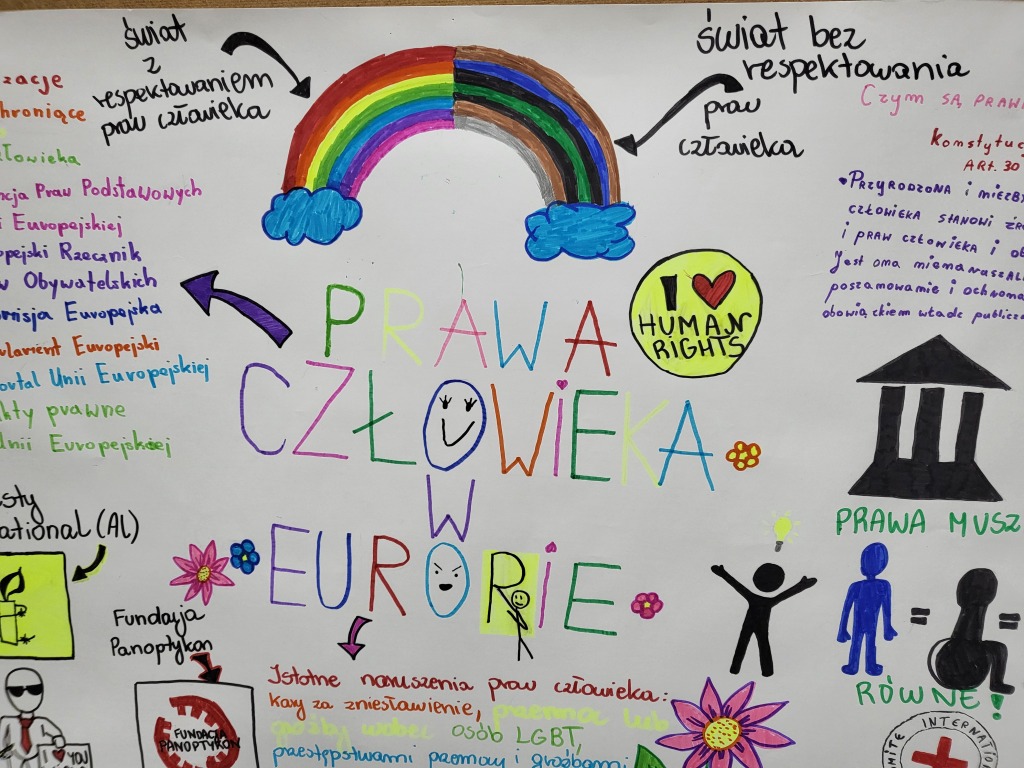 świat
z
respektowaniem
praw człowieka
świat bez
respektowania
praw
człowieka
zacje
hroniące
złowieka
ncja Praw Podstawowych
i Europejskiej
opejski Rzecznik
w Obywatelskich
omisja Europejska
arlament Europejski
ortal Unii Europejskiej
kty prawne
Unii Europejskiej
Czym SĄ PRAWA
Konstytuc
ART. 30
• PRZYRODZONA i NIEZB
CZŁOWIEKA STANOWI ŹRÓ
i PRAW CZŁOWIEKA i OB
Jest ona nienaruszal
poszanowanie i ochrona
obowiązkiem władz publicz
I ❤
HUMAN
RIGHTS
PRAWA
CZŁOWiEKA
W
EUROPiE
PRAWA MUSZ
= =
RÓWNE!
esty
national (AI)
Fundacja
Panoptykon
FUNDACJA
PANOPTYKON
❤ YOU
Istotne naruszenia praw człowieka:
kary za zniesławienie, przemoc lub
groźby wobec osób LGBT,
przestępstwami przemocy i groźbami
MITE INTERNATION